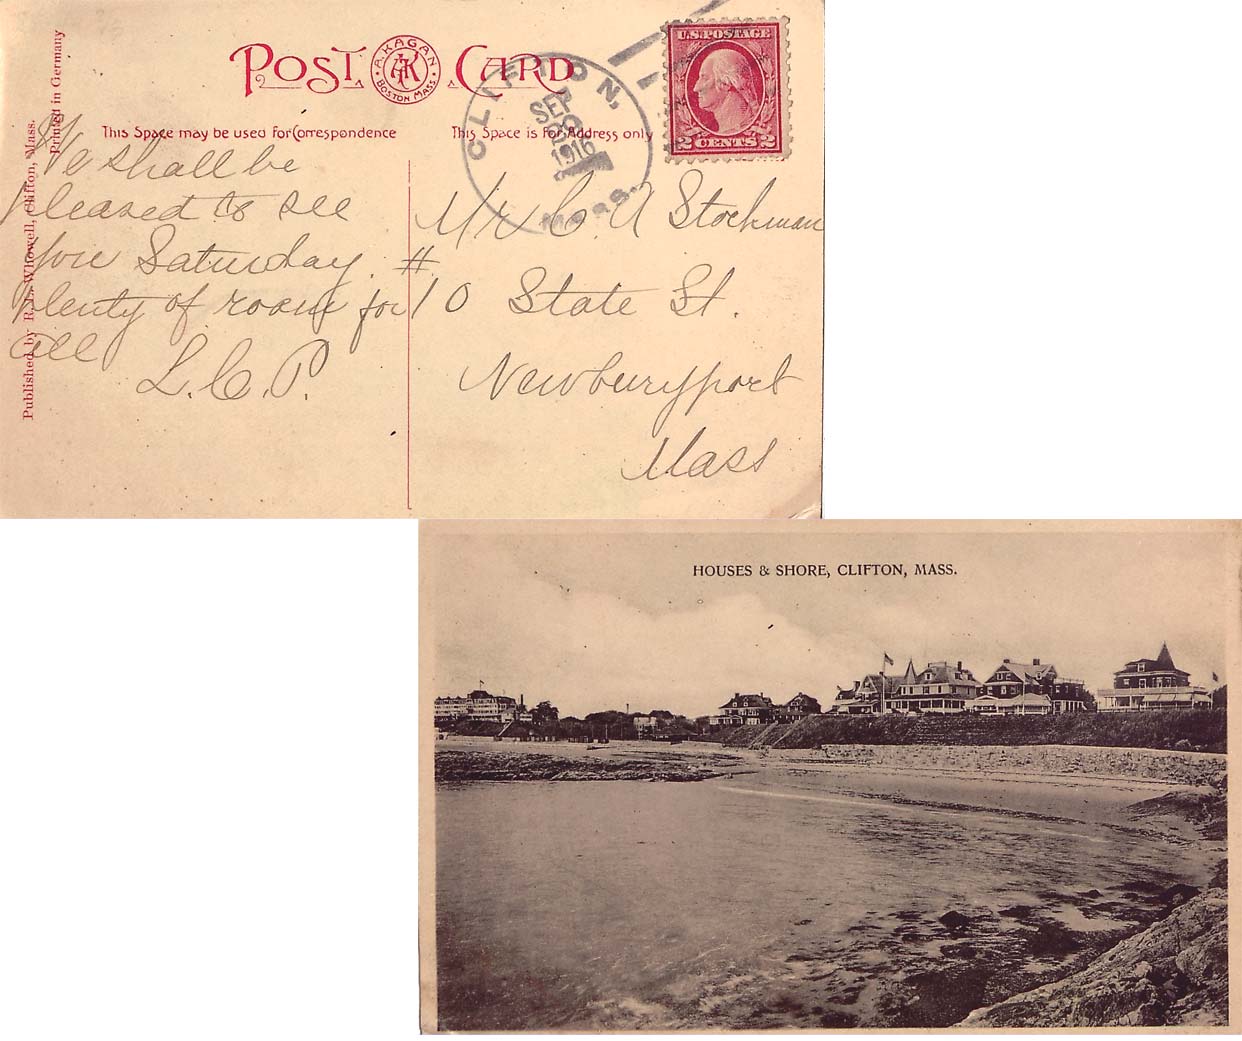 POST CARD
A. KAGAN
AK
BOSTON MASS.
This Space may be used for Correspondence
This Space is for Address only
Printed in Germany
Published by R. L. Whowell, Clifton, Mass.
CLIFTON,
SEP
1916
MASS.
U.S. POSTAGE
2 CENTS 2
We shall be
pleased to see
you Saturday.
plenty of room for
all
L.C.P.
Mr C. A Stockman
# 10 State St.
Newburyport
Mass
HOUSES & SHORE, CLIFTON, MASS.